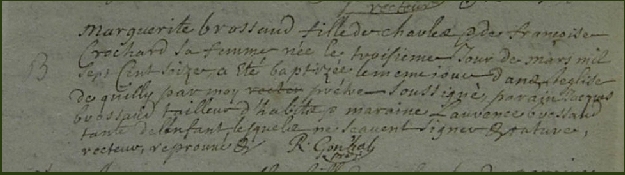 recteur
B
Marguerite brossaud fille de charles & de francoise
Crochard sa femme née le troisieme Jour de mars mil
sept Cent seize a été baptizée le meme jour dans leglise
de quilly par moy recter prêtre soussigné, parain Jacques
brossaud tailleur d'habits & maraine Laurence brossaud
tante de lenfant lesquels ne scauent signer &
recteur, reprouué & R.